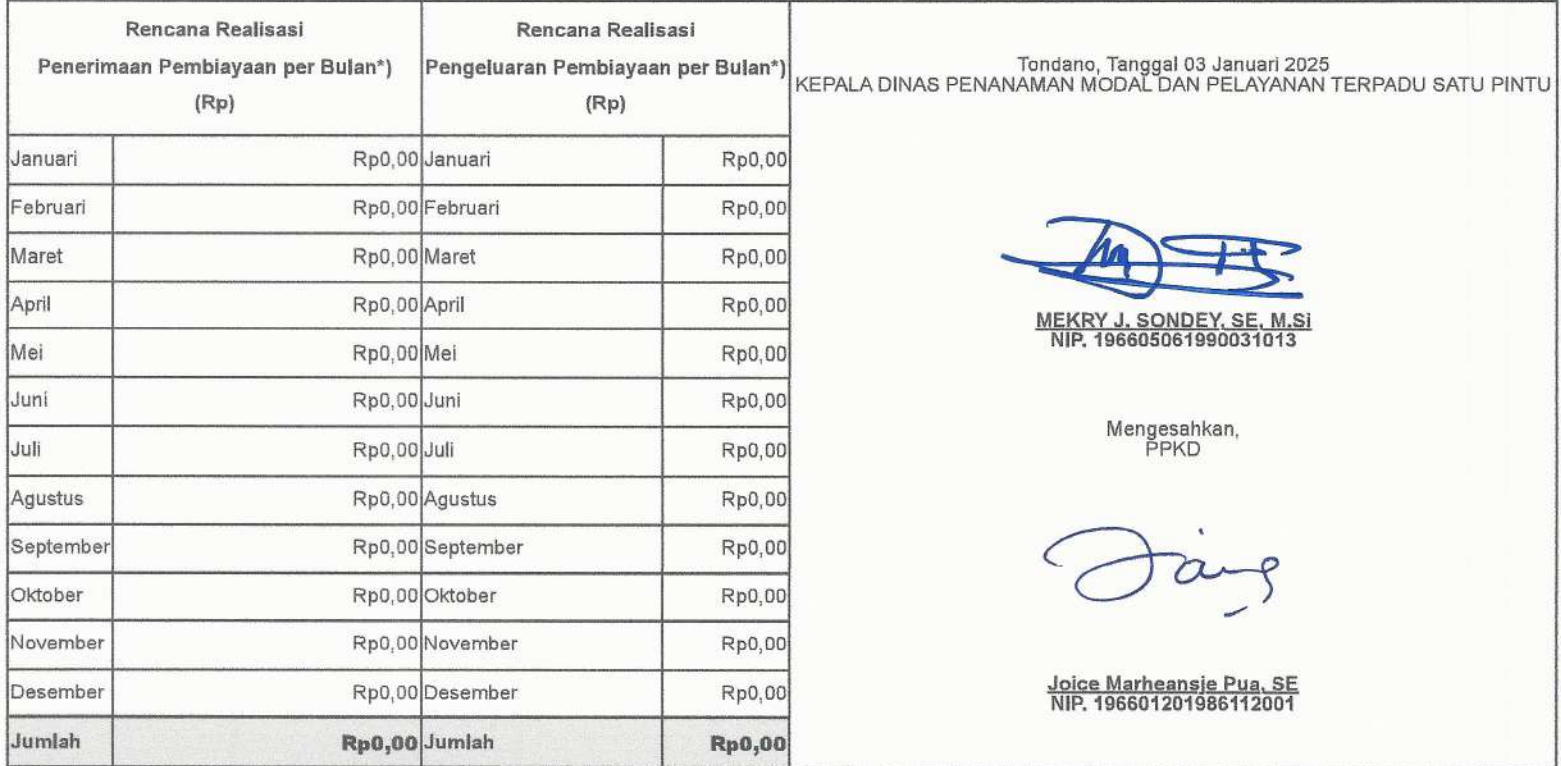 Rencana Realisasi
Penerimaan Pembiayaan per Bulan*)
(Rp)
Rencana Realisasi
Pengeluaran Pembiayaan per Bulan*)
(Rp)
Januari Rp0,00 Januari Rp0,00
Februari Rp0,00 Februari Rp0,00
Maret Rp0,00 Maret Rp0,00
April Rp0,00 April Rp0,00
Mei Rp0,00 Mei Rp0,00
Juni Rp0,00 Juni Rp0,00
Juli Rp0,00 Juli Rp0,00
Agustus Rp0,00 Agustus Rp0,00
September Rp0,00 September Rp0,00
Oktober Rp0,00 Oktober Rp0,00
November Rp0,00 November Rp0,00
Desember Rp0,00 Desember Rp0,00
Jumlah Rp0,00 Jumlah Rp0,00
Tondano, Tanggal 03 Januari 2025
KEPALA DINAS PENANAMAN MODAL DAN PELAYANAN TERPADU SATU PINTU
MEKRY J. SONDEY, SE, M.Si
NIP. 196605061990031013
Mengesahkan,
PPKD
Joice Marheansje Pua, SE
NIP. 196601201986112001